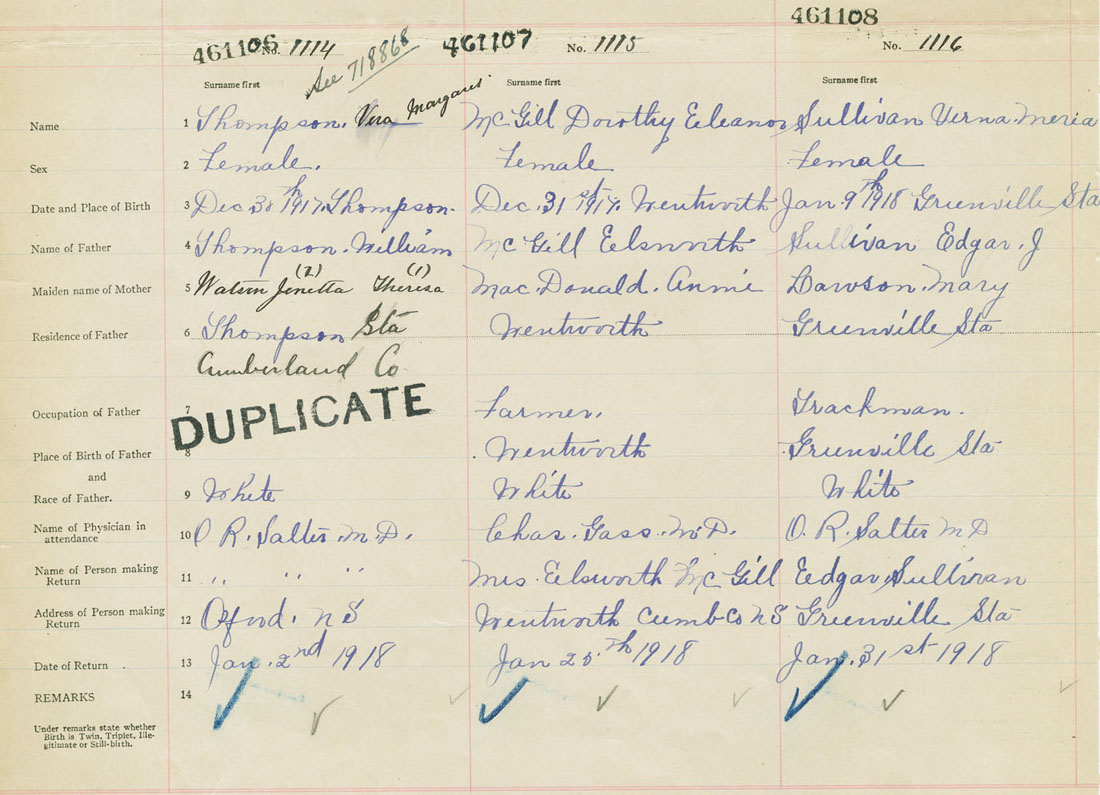 461106 No. 1114 461107 No. 1115 461108 No. 1116
See 718868
Surname first Surname first Surname first
Name 1 Thompson. Vera Margaret McGill Dorothy Eeleanor Sullivan Verna Meria
Sex 2 Female. Female Female
Date and Place of Birth 3 Dec. 30th 1917. Thompson. Dec. 31st 1917. Wentworth Jan 9th 1918 Greenville Sta
Name of Father 4 Thompson. William McGill Eelsworth Sullivan Edgar. J
Maiden name of Mother 5 Watson (2) Jenetta (1) Theresa MacDonald. Annie Dawson. Mary
Residence of Father 6 Thompson Sta Wentworth Greenville Sta
Cumberland Co
Occupation of Father 7 DUPLICATE Farmer. Trackman.
Place of Birth of Father 8 Wentworth Greenville Sta
and
Race of Father. 9 White White White
Name of Physician in attendance 10 O. R. Salter. M.D. Chas. Gass. M.D. O. R. Salter M D
Name of Person making Return 11 " " " Mrs. Eelsworth McGill Eedgar Sullivan
Address of Person making Return 12 Oxford. N S Wentworth Cumb Co N S Greenville Sta
Date of Return 13 Jan. 2nd 1918 Jan 25th 1918 Jan. 31st 1918
REMARKS 14
Under remarks state whether
Birth is Twin, Triplet, Ille-
gitimate or Still-birth.